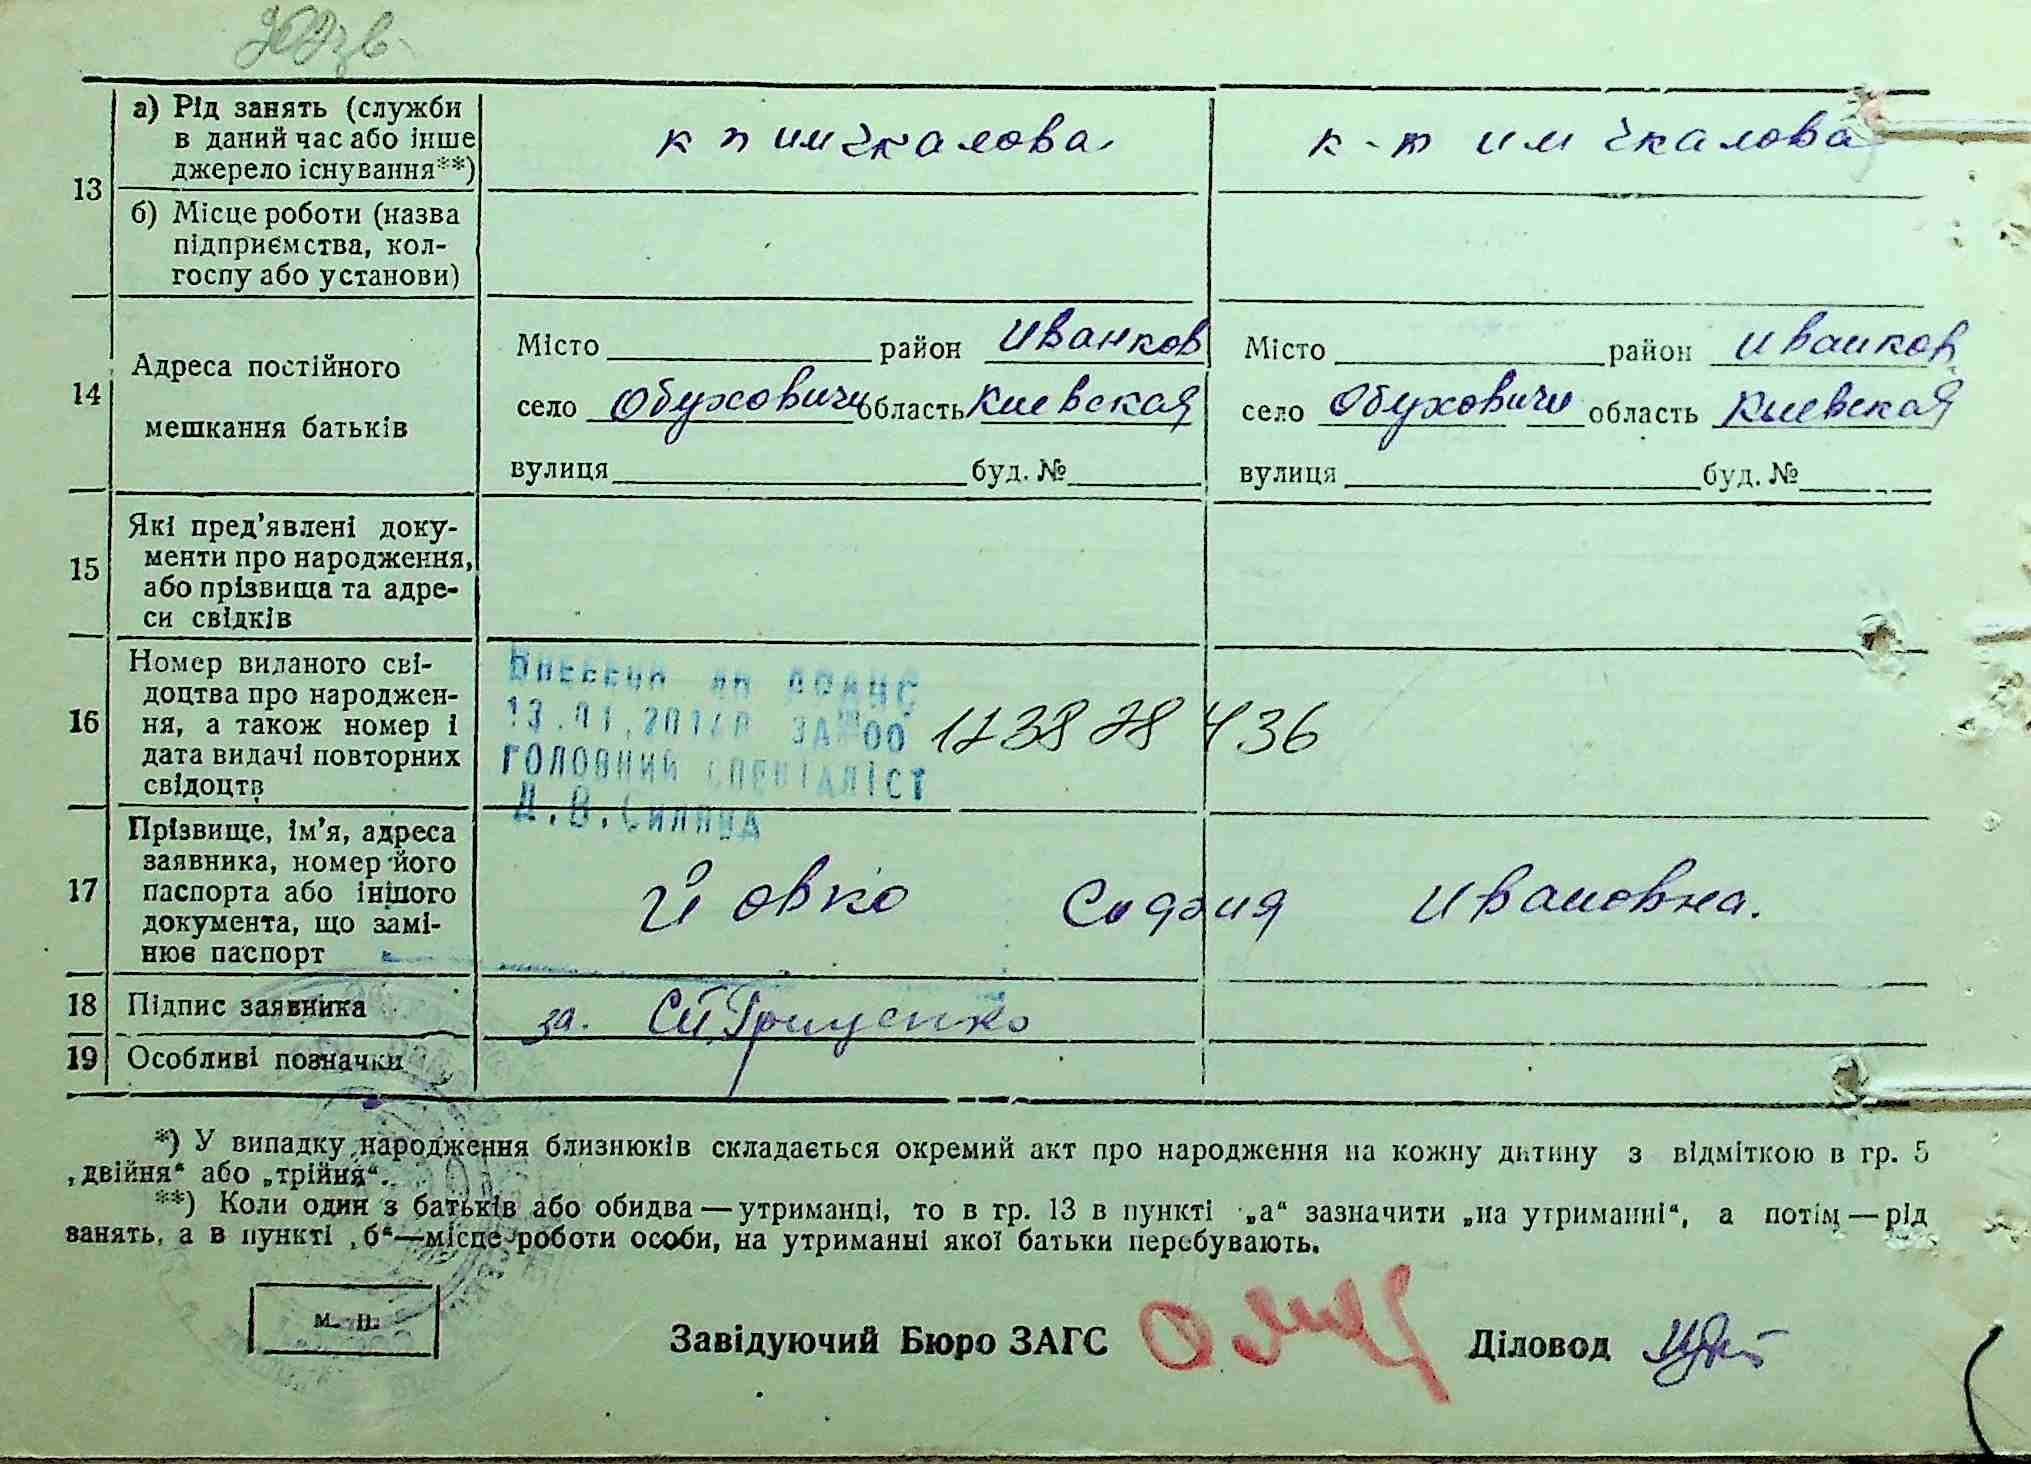 13
а) Рід занять (служби
в даний час або інше
джерело існування**)
к п им Чкалова.
к-т им Чкалова
б) Місце роботи (назва
підприємства, кол-
госпу або установи)
14
Адреса постійного
мешкання батьків
Місто район Иванков
село Обуховичи область Киевская
вулиця буд. №
Місто район Иванков
село Обуховичи область Киевская
вулиця буд. №
15
Які пред’явлені доку-
менти про народження,
або прізвища та адре-
си свідків
16
Номер виданого сві-
доцтва про народжен-
ня, а також номер і
дата видачі повторних
свідоцтв
ГОЛОВНИЙ СПЕЦІАЛІСТ
17
Прізвище, ім’я, адреса
заявника, номер його
паспорта або іншого
документа, що замі-
нює паспорт
Йовко София Ивановна.
18 Підпис заявника
за. Гриценко
19 Особливі позначки
*) У випадку народження близнюків складається окремий акт про народження на кожну дитину з відміткою в гр. 5
„двійня“ або „трійня“.
**) Коли один з батьків або обидва — утриманці, то в гр. 13 в пункті „а“ зазначити „на утриманні“, а потім — рід
занять, а в пункті „б“—місце роботи особи, на утриманні якої батьки перебувають.
М. П.
Завідуючий Бюро ЗАГС
Діловод